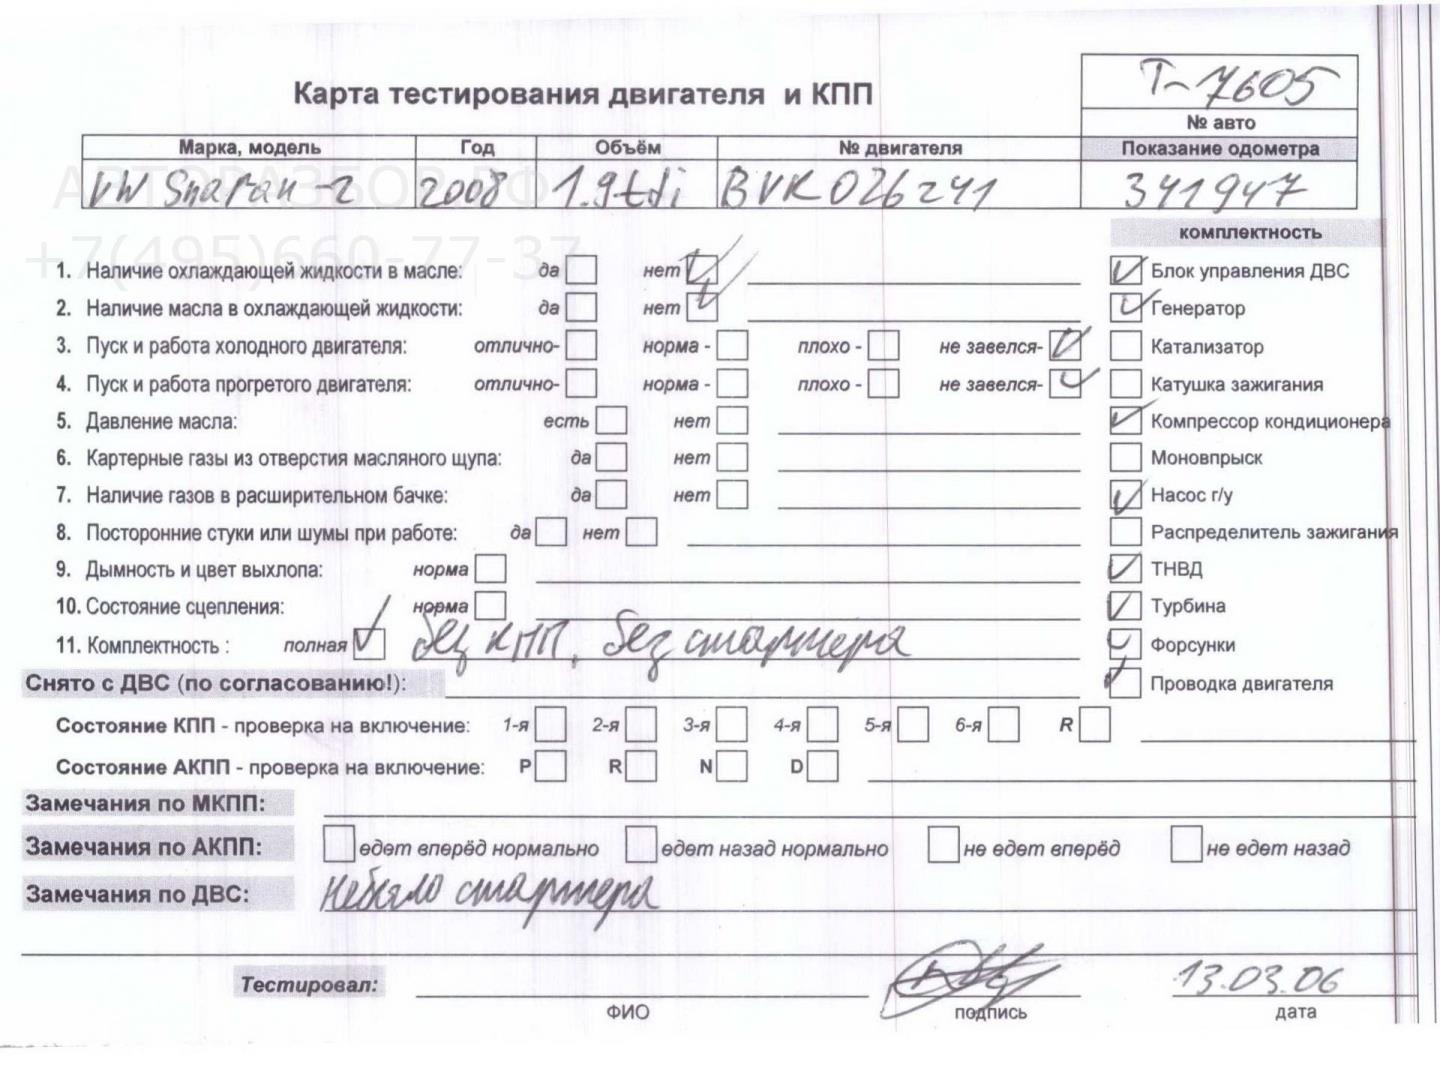 Т-7605
Карта тестирования двигателя и КПП
№ авто
Марка, модель Год Объём № двигателя Показание одометра
VW Sharan-2 2008 1.9tdi BVK026241 341947
АВТОРАЗБОР.РФ
+7(495)660-77-37
комплектность
1. Наличие охлаждающей жидкости в масле: да нет Блок управления ДВС
2. Наличие масла в охлаждающей жидкости: да нет Генератор
3. Пуск и работа холодного двигателя: отлично- норма - плохо - не завелся- Катализатор
4. Пуск и работа прогретого двигателя: отлично- норма - плохо - не завелся- Катушка зажигания
5. Давление масла: есть нет Компрессор кондиционера
6. Картерные газы из отверстия масляного щупа: да нет Моновпрыск
7. Наличие газов в расширительном бачке: да нет Насос г/у
8. Посторонние стуки или шумы при работе: да нет Распределитель зажигания
9. Дымность и цвет выхлопа: норма ТНВД
10. Состояние сцепления: норма Турбина
11. Комплектность : полная без КПП, без стартера Форсунки
Снято с ДВС (по согласованию!): Проводка двигателя
Состояние КПП - проверка на включение: 1-я 2-я 3-я 4-я 5-я 6-я R
Состояние АКПП - проверка на включение: P R N D
Замечания по МКПП:
Замечания по АКПП: едет вперёд нормально едет назад нормально не едет вперёд не едет назад
Замечания по ДВС: небыло стартера
Тестировал: 13.03.06
ФИО подпись дата